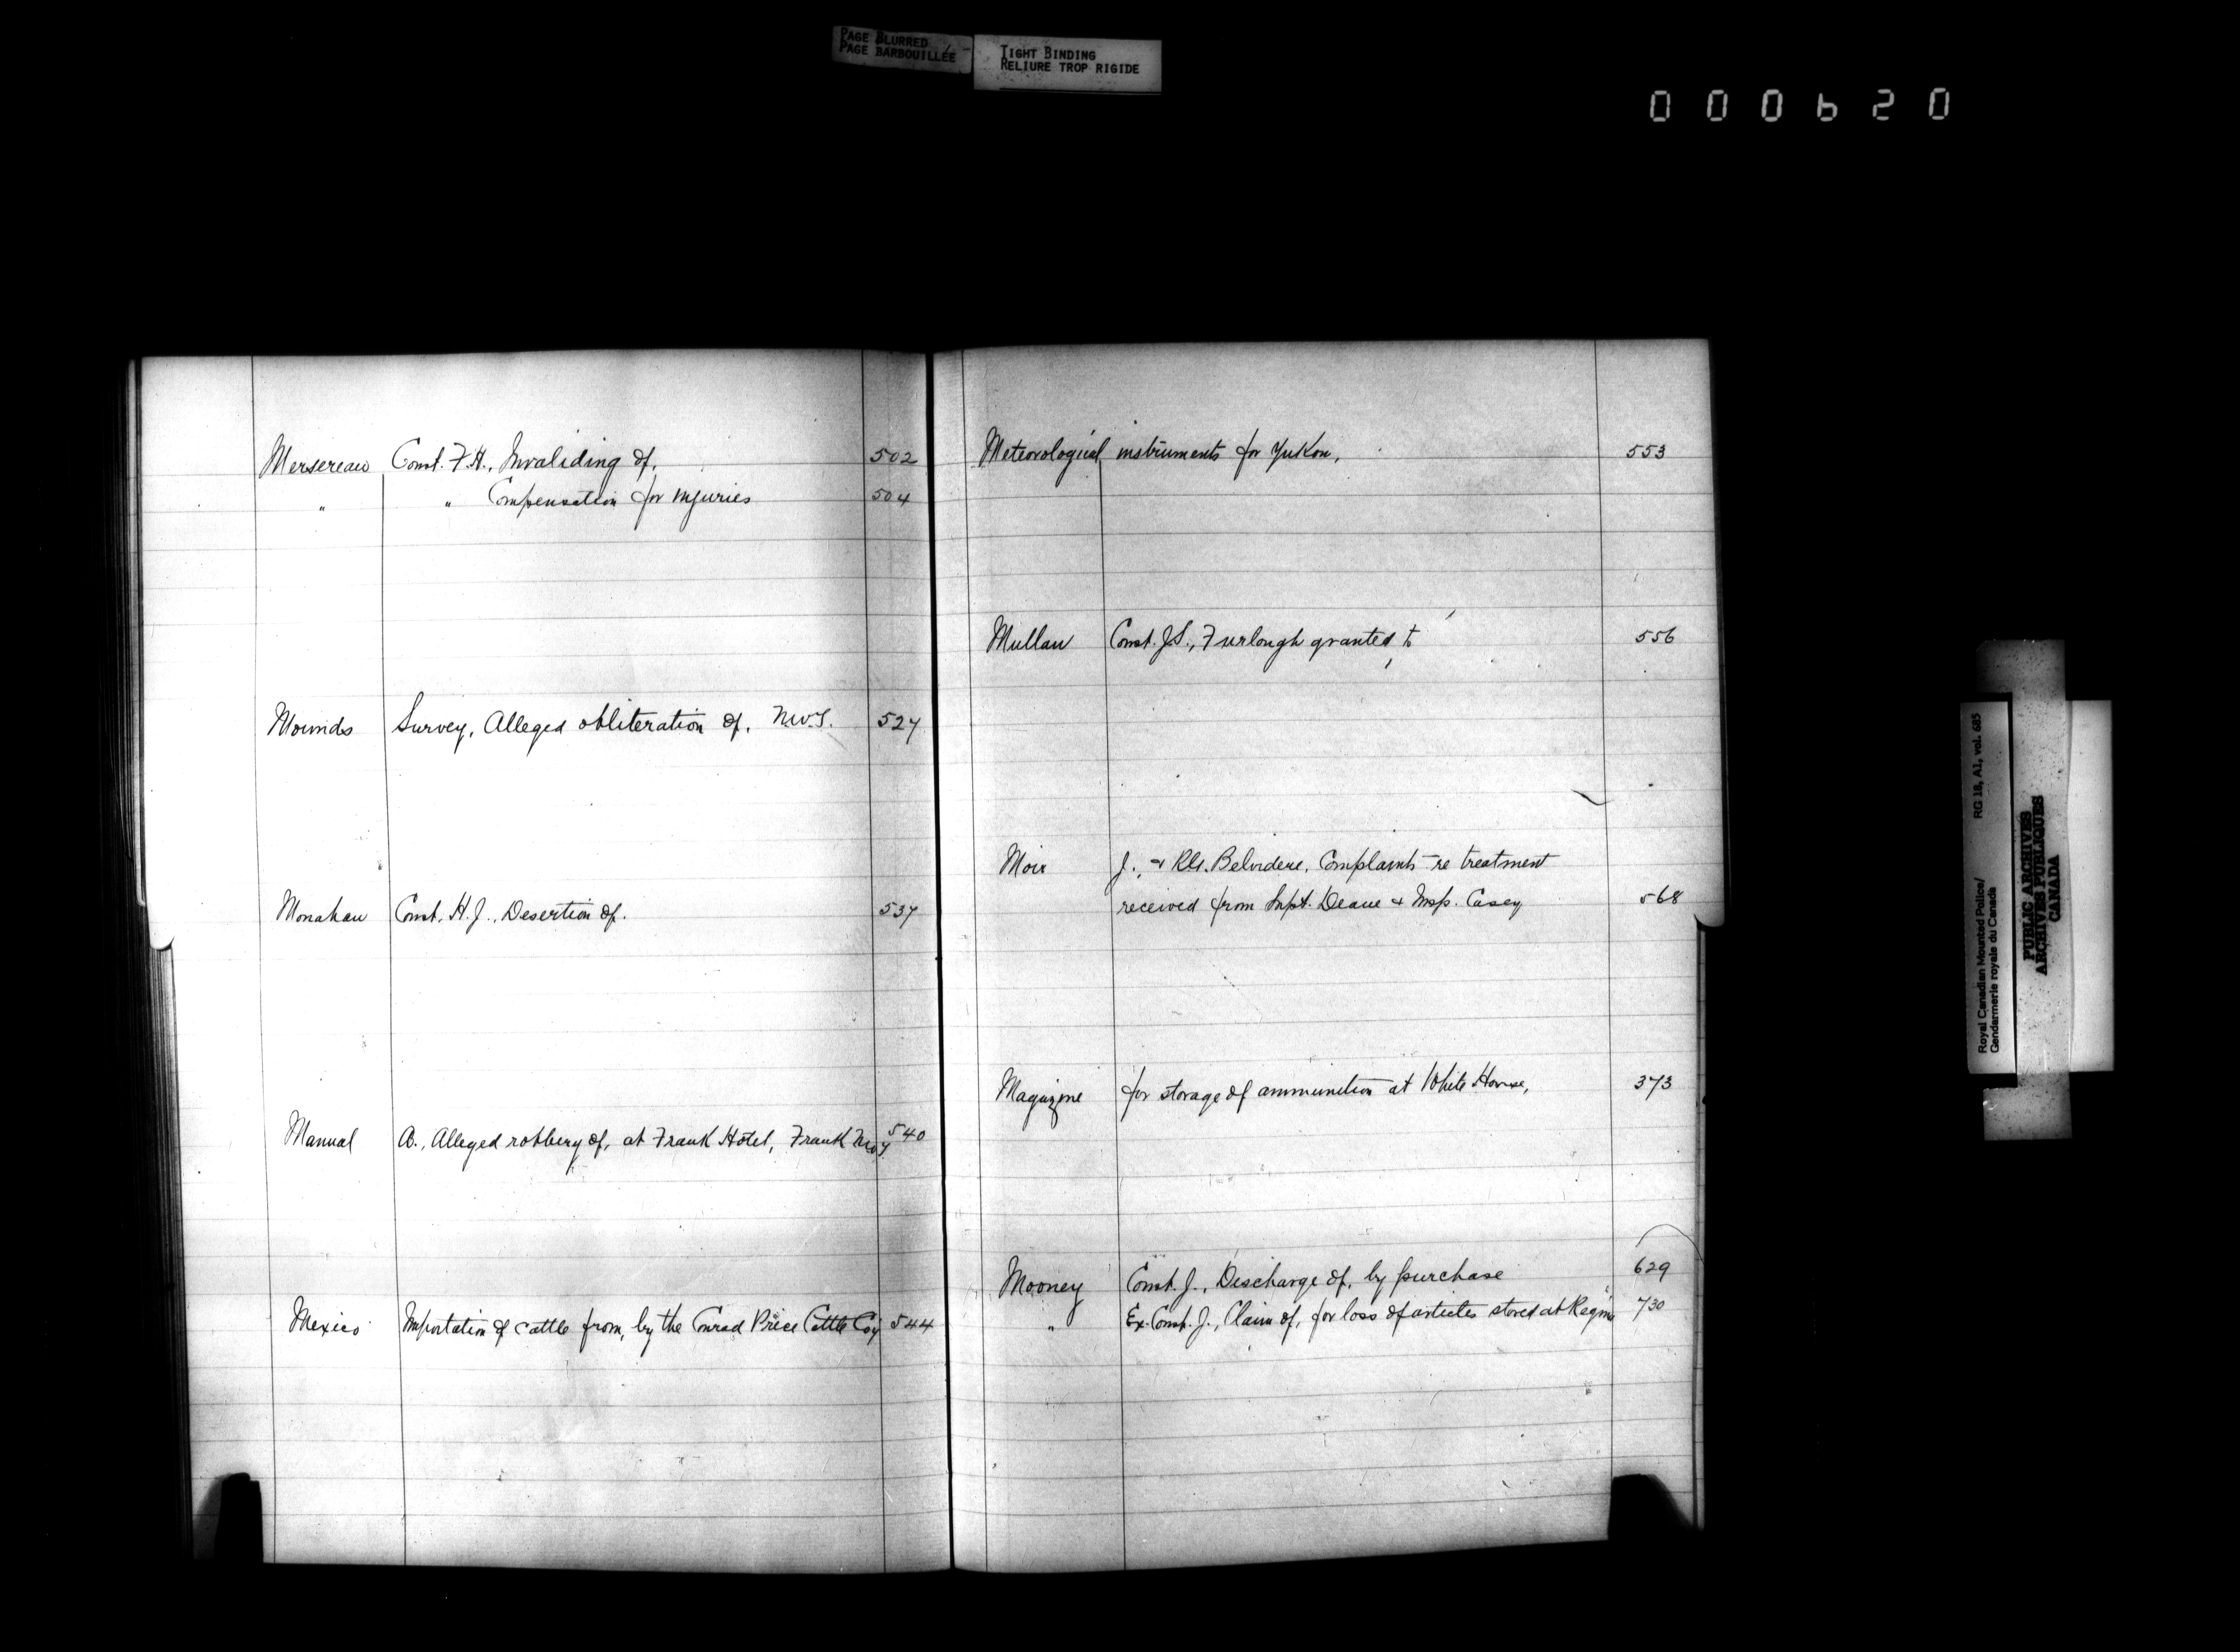 PAGE BLURRED
PAGE BARBOUILLÉE
TIGHT BINDING
RELIURE TROP RIGIDE
000620
Mersereau Const. F.H., Invaliding of, 502
" " Compensation for injuries 504
Mounds Survey, Alleged obliteration of, N.W.T. 527
Monahan Const. H.J., Desertion of. 537
Manual A., Alleged robbery of, at Frank Hotel, Frank NWT. 540
Mexico Importation of cattle from, by the Conrad Price Cattle Coy 544
Meteorological instruments for Yukon, 553
Mullan Const. J.S., Furlough granted to 556
Moir J., & Belvidere, Complaints re treatment
received from Supt. Deane & Insp. Casey 568
Magazine for storage of ammunition at White Horse, 373
Mooney Const. J., Discharge of, by purchase 629
" Ex. Const. J., Claim of, for loss of articles stored at Regina 730
Royal Canadian Mounted Police/ RG 18, A1, vol. 685
Gendarmerie royale du Canada
PUBLIC ARCHIVES
ARCHIVES PUBLIQUES
CANADA